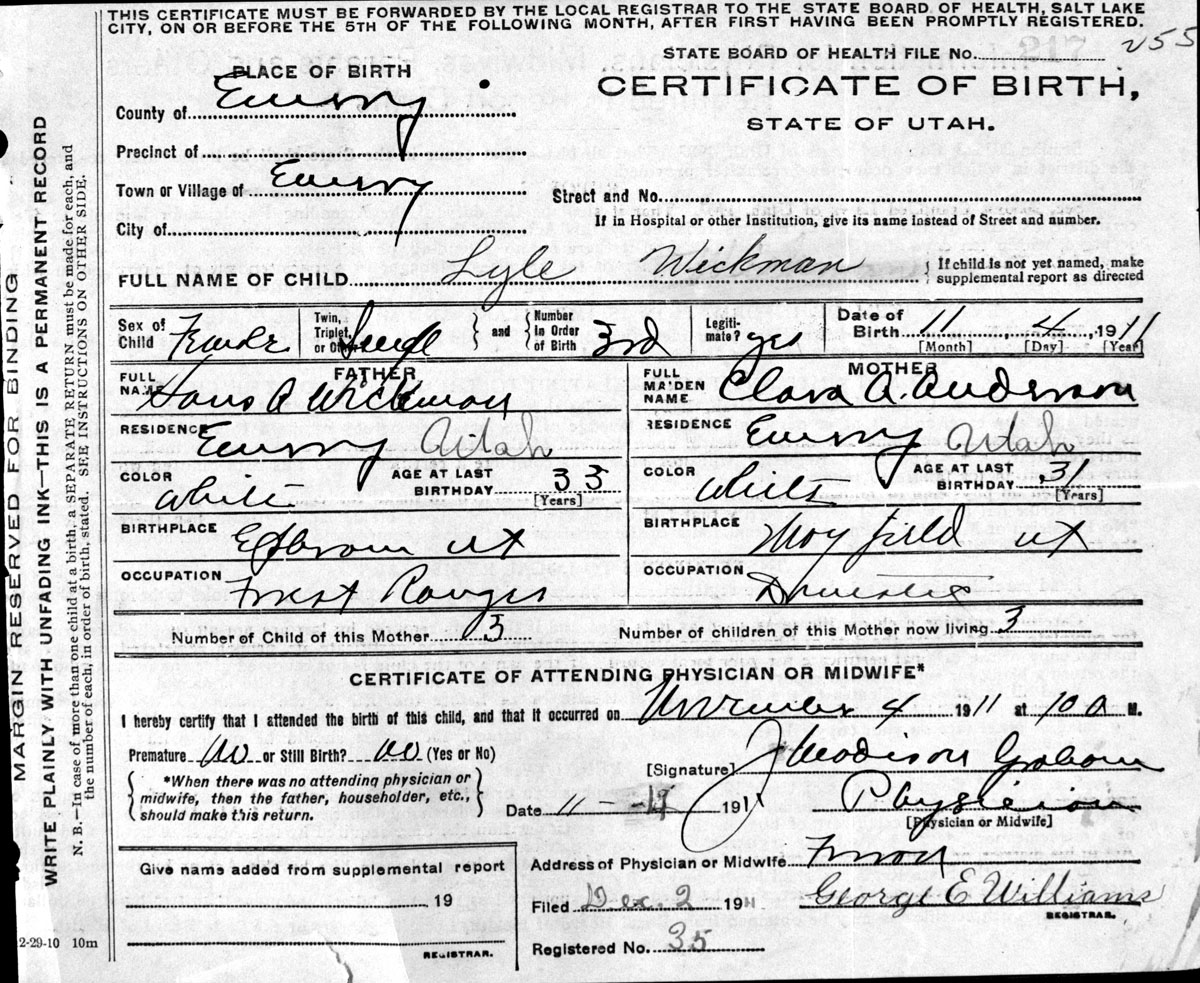 THIS CERTIFICATE MUST BE FORWARDED BY THE LOCAL REGISTRAR TO THE STATE BOARD OF HEALTH, SALT LAKE
CITY, ON OR BEFORE THE 5TH OF THE FOLLOWING MONTH, AFTER FIRST HAVING BEEN PROMPTLY REGISTERED.
STATE BOARD OF HEALTH FILE No. 255
PLACE OF BIRTH
CERTIFICATE OF BIRTH,
STATE OF UTAH.
County of Emery
Precinct of
Town or Village of Emery
Street and No.
City of
If in Hospital or other Institution, give its name instead of Street and number.
FULL NAME OF CHILD Lyle Wickman
If child is not yet named, make
supplemental report as directed
Sex of Child Female
Twin, Triplet, or Other Single
and
Number in Order of Birth 3rd
Legiti-mate? yes
Date of Birth 11 4 1911
[Month] [Day] [Year]
FATHER
FULL NAME Hans A Wickman
RESIDENCE Emery Utah
COLOR White
AGE AT LAST BIRTHDAY 33
[Years]
BIRTHPLACE Ephraim ut
OCCUPATION Forest Ranger
MOTHER
FULL MAIDEN NAME Clara A. Anderson
RESIDENCE Emery Utah
COLOR White
AGE AT LAST BIRTHDAY 31
[Years]
BIRTHPLACE Mayfield ut
OCCUPATION Domestic
Number of Child of this Mother 3
Number of children of this Mother now living 3
CERTIFICATE OF ATTENDING PHYSICIAN OR MIDWIFE*
I hereby certify that I attended the birth of this child, and that it occurred on November 4 1911 at 10 a M.
Premature No or Still Birth? No (Yes or No)
*When there was no attending physician or
midwife, then the father, householder, etc.,
should make this return.
[Signature] J Madison
Date 11 - 191
Physician
[Physician or Midwife]
Give name added from supplemental report
19
REGISTRAR.
Address of Physician or Midwife Ferron
Filed Dec. 2 1911
George E Williams
REGISTRAR.
Registered No. 35
2-29-10 10m
MARGIN RESERVED FOR BINDING
WRITE PLAINLY WITH UNFADING INK—THIS IS A PERMANENT RECORD
N. B.—In case of more than one child at a birth, a SEPARATE RETURN must be made for each, and
the number of each, in order of birth, stated. SEE INSTRUCTIONS ON OTHER SIDE.